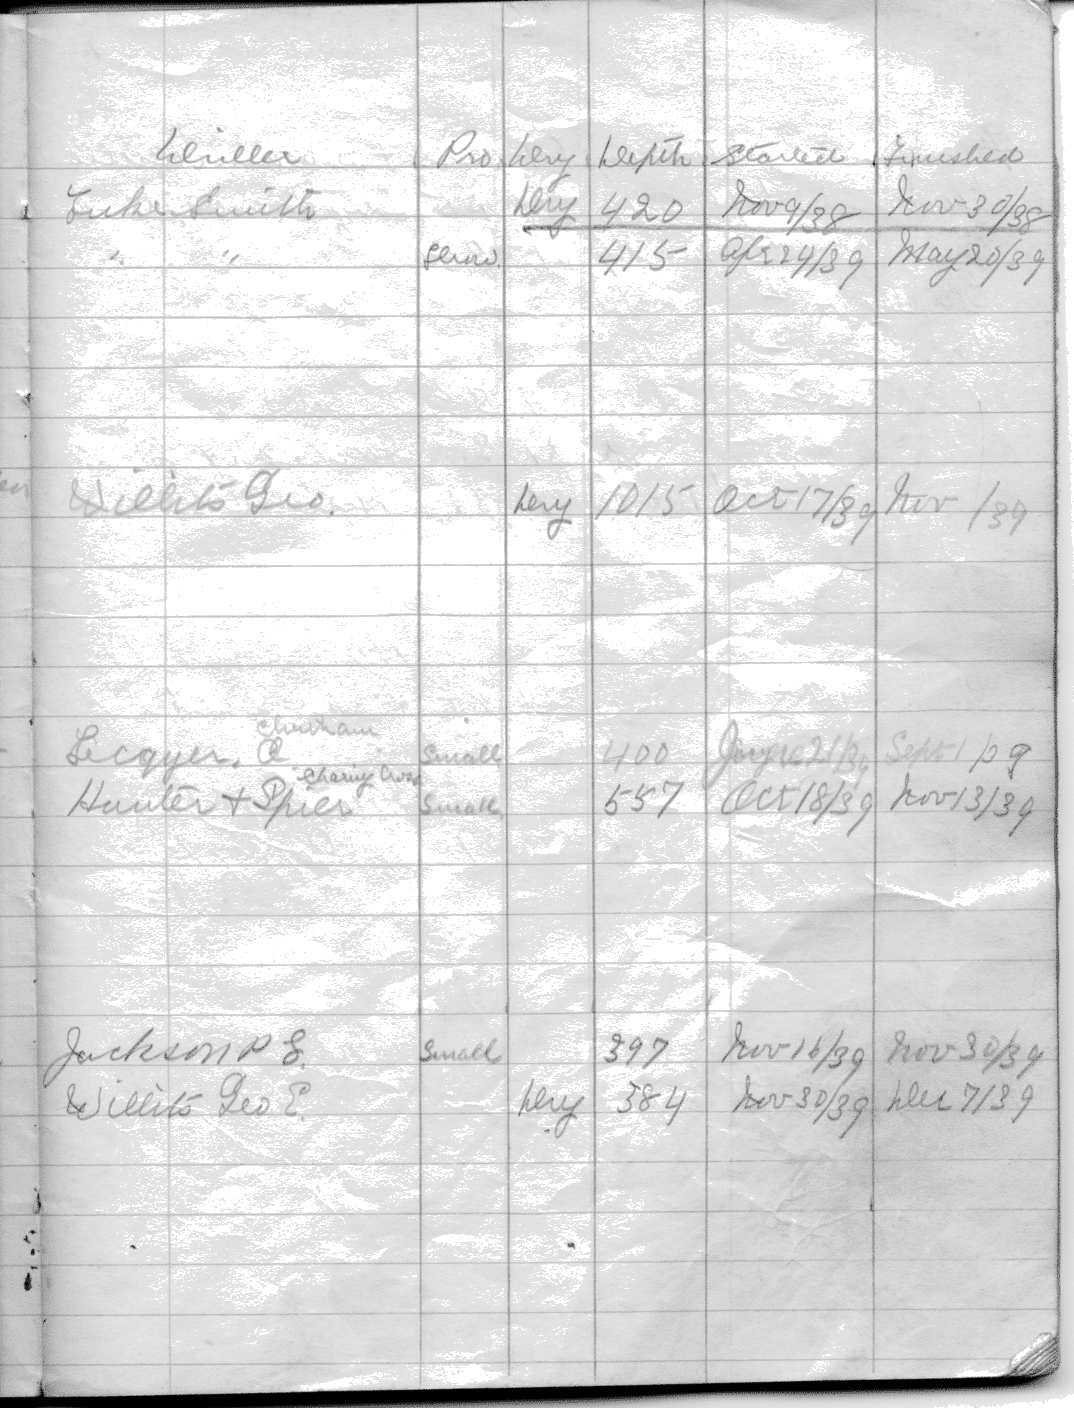 Driller Pro Dry Depth Started Finished
Luke Smith Dry 420 Nov 9/38 Nov 30/38
" " Show. 415 Apr 24/39 May 20/39
Willits Geo. Dry 1015 Oct 17/39 Nov /39
Chatham
Lecqyer. A Small 400 21/39 Sept 1/39
Charing Cross
Hunter + Spier Small 557 Oct 18/39 Nov 13/39
Jackson P S. Small 397 Nov 16/39 Nov 30/39
Willits Geo E. Dry 384 Nov 30/39 Dec 7/39